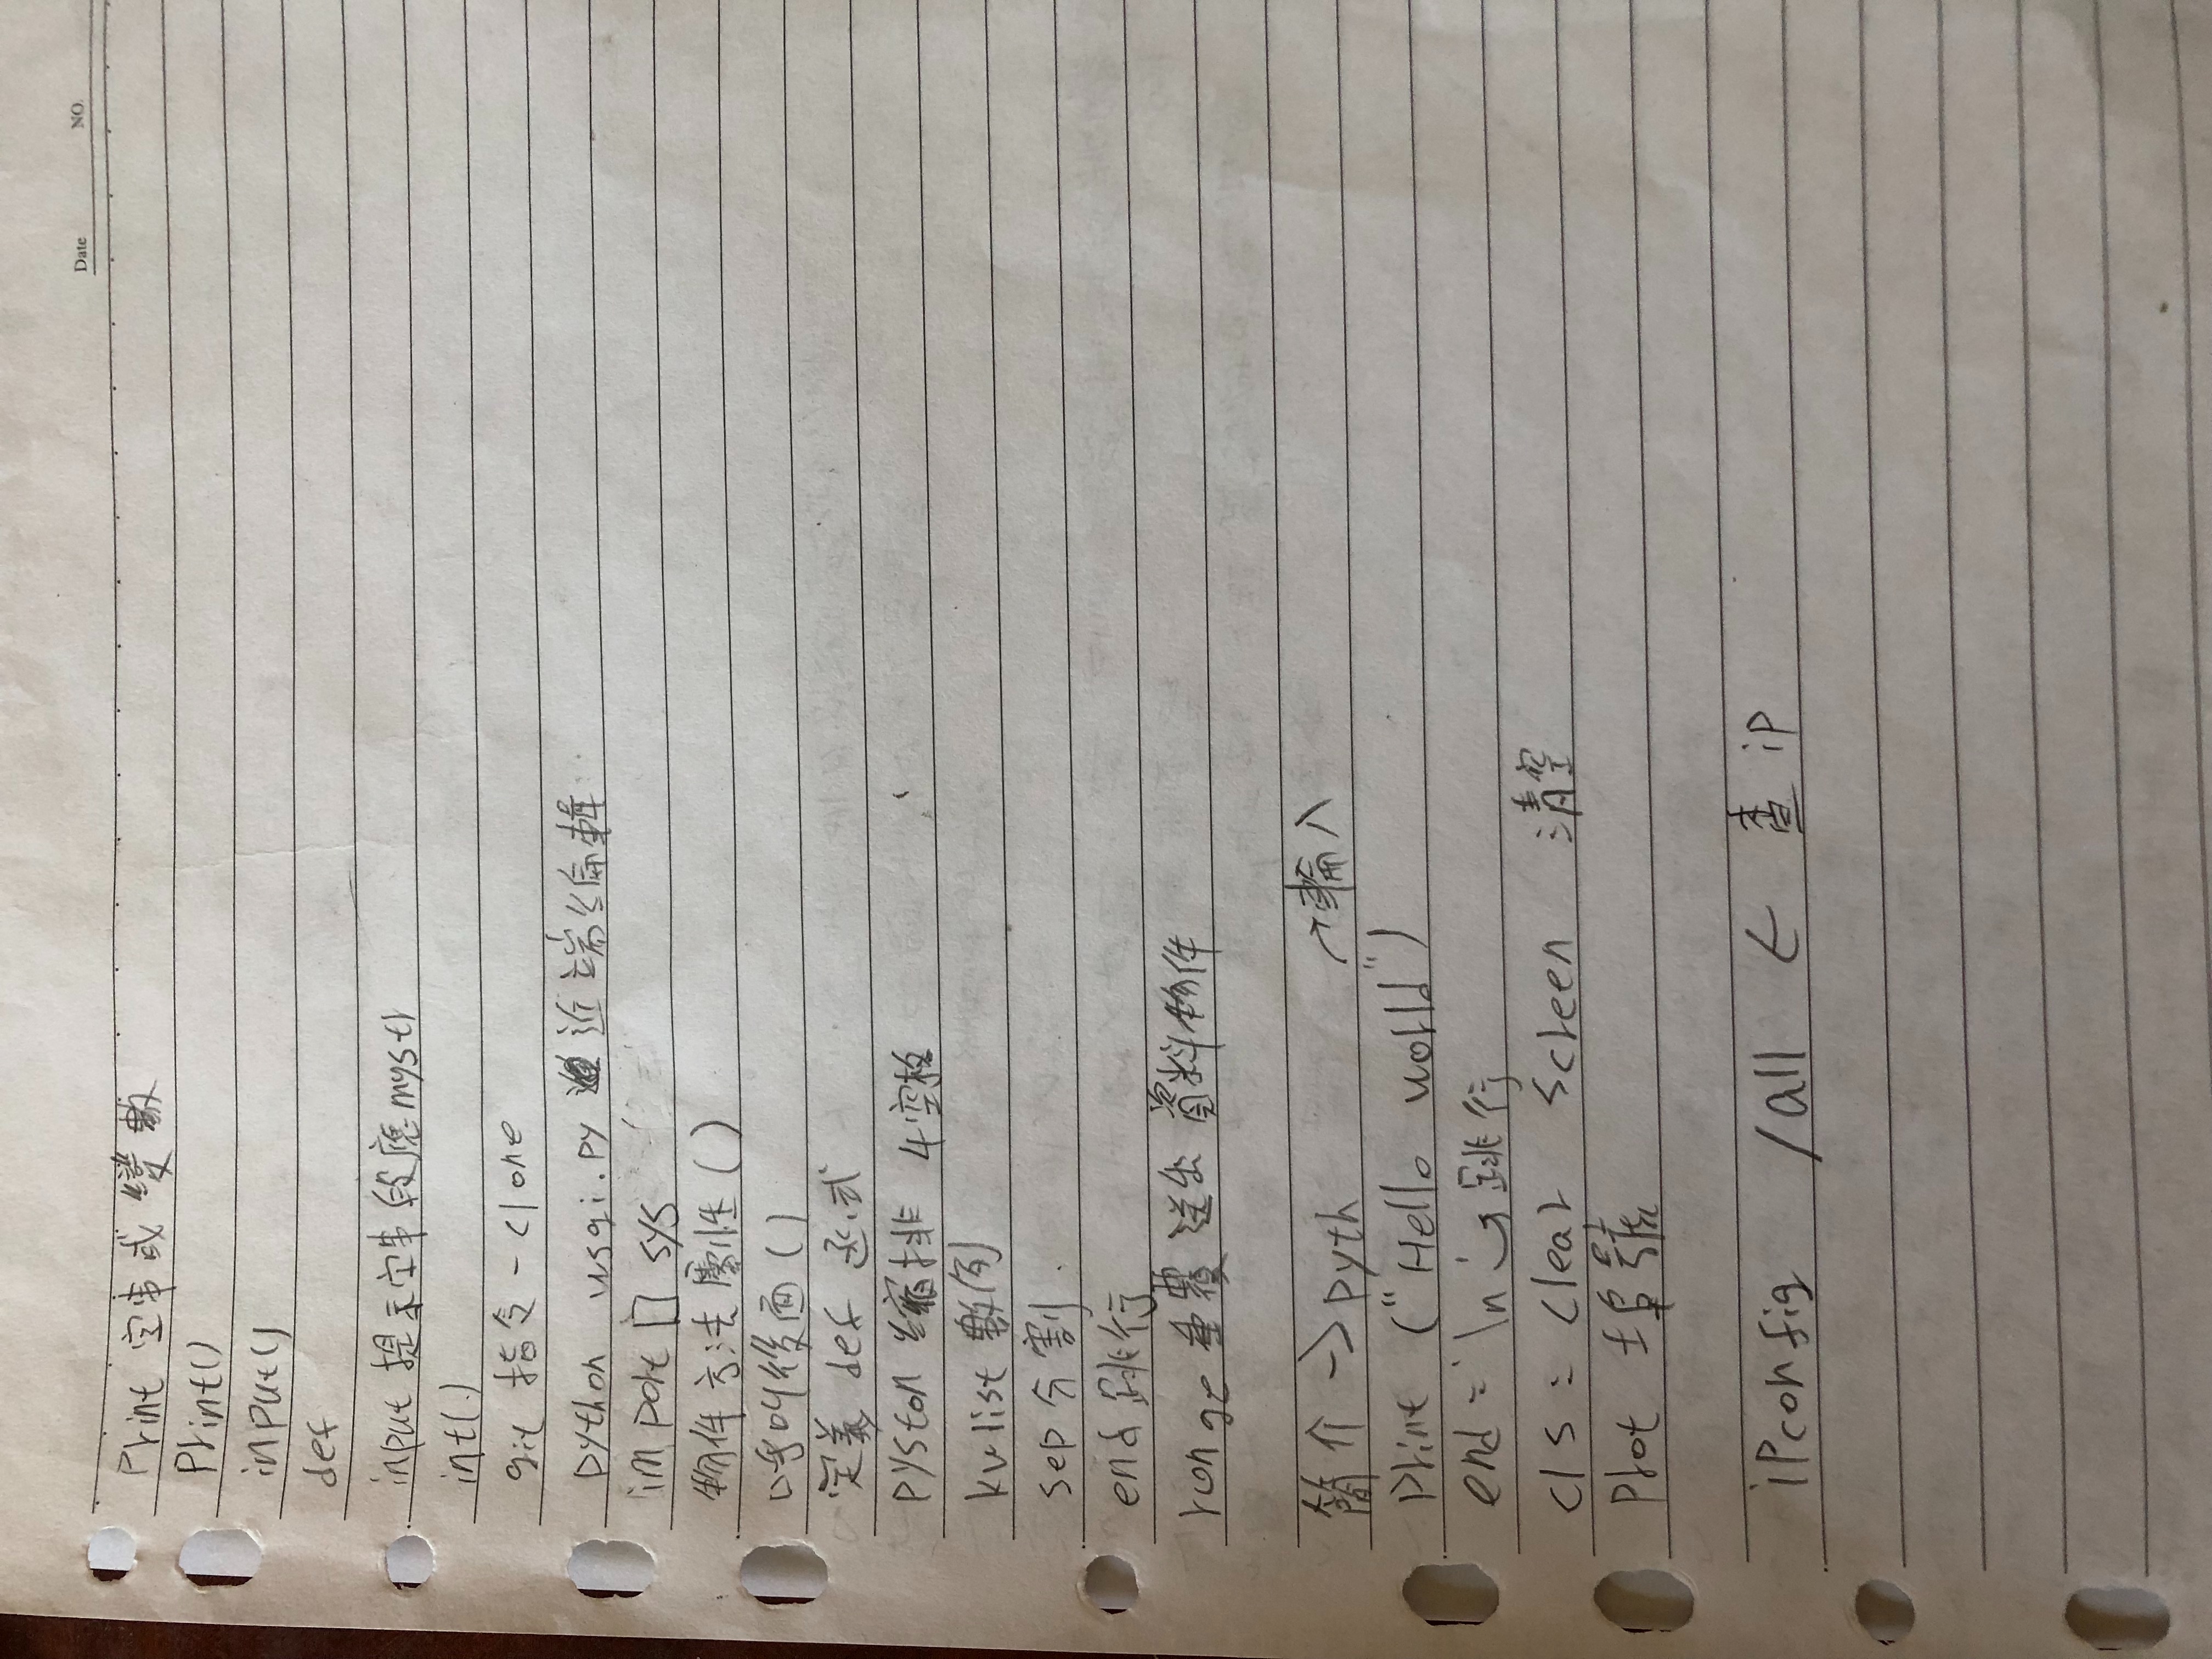 Date NO.
Print 字串或變數
Print()
input()
def
input 提示字串 段應mystr
int(.)
git 指令 - clone
python wsgi.py 近端編輯
import [] sys
物件方法屬性()
呼叫後面()
定義 def 函式
pyston 縮排 4空格
kwlist 數列
sep分割.
end 跳行
range 重覆送出 資料物件
簡介 -> pyth →輸入
print ("Hello world")
end = '\n' 跳行
cls = clear screen 清空
Prot 埠號
ipconfig /all ← 查ip